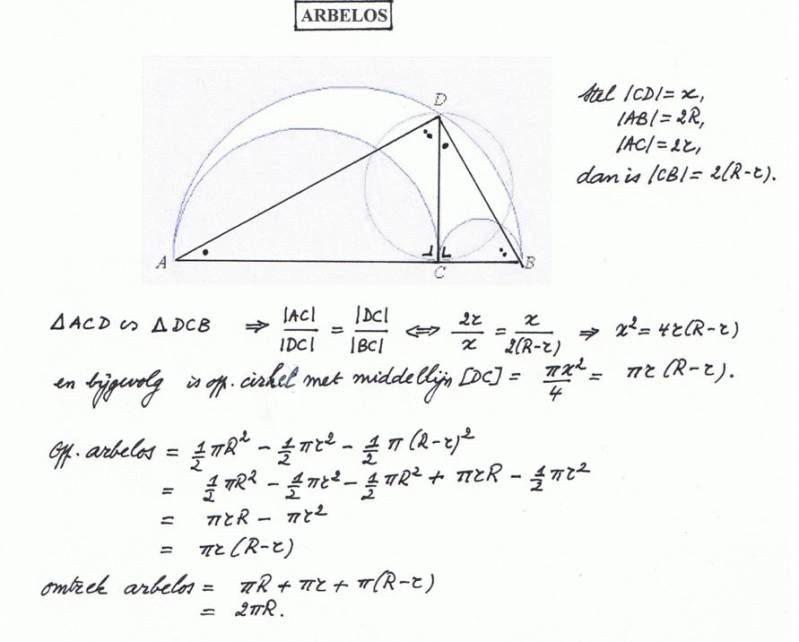 ARBELOS
Stel |CD| = x,
|AB| = 2R,
|AC| = 2r,
dan is |CB| = 2(R-r).
D
A
C
B
ΔACD ∽ ΔDCB ⇒ |AC|/|DC| = |DC|/|BC| ⇔ 2r/x = x/2(R-r) ⇒ x² = 4r(R-r)
en bijgevolg is opp. cirkel met middellijn [DC] = πx²/4 = πr(R-r).
Opp. arbelos = 1/2 πR² - 1/2 πr² - 1/2 π(R-r)²
= 1/2 πR² - 1/2 πr² - 1/2 πR² + πrR - 1/2 πr²
= πrR - πr²
= πr(R-r)
omtrek arbelos = πR + πr + π(R-r)
= 2πR.